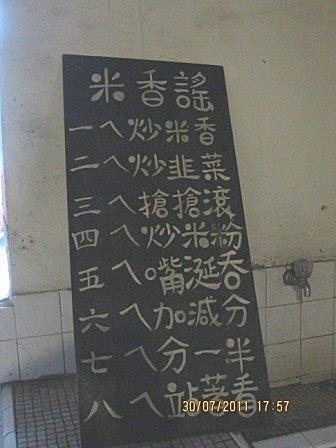 米香謠
一ㄟ炒米香
二ㄟ炒韭菜
三ㄟ搶搶滾
四ㄟ炒米粉
五ㄟ嘴涎吞
六ㄟ加減分
七ㄟ分一半
八ㄟ站著看
30/07/2011 17:57